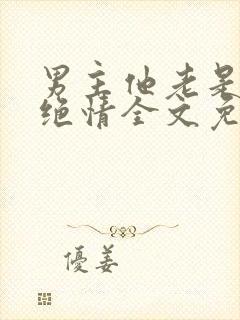 男主他老是
绝情全文免
優姜